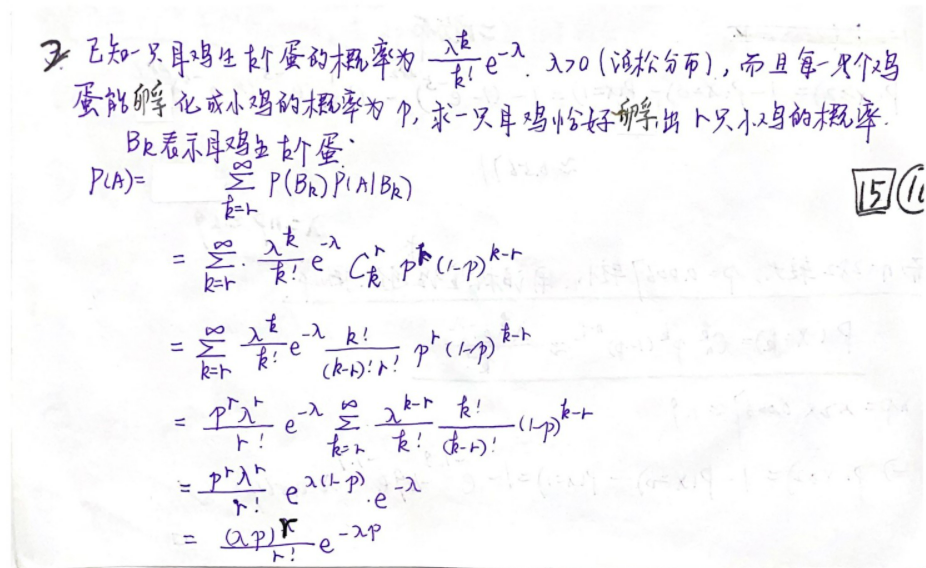 2. 已知一只母鸡生k个蛋的概率为 λ^k/k! e^{-λ}. λ>0 (泊松分布), 而且每一个鸡
蛋能孵化成小鸡的概率为p, 求一只母鸡恰好孵出r只小鸡的概率.
B_k表示母鸡生k个蛋.
P(A)= ∑_{k=r}^{∞} P(B_k)P(A|B_k)
15
= ∑_{k=r}^{∞} λ^k/k! e^{-λ} C_k^r p^r (1-p)^{k-r}
= ∑_{k=r}^{∞} λ^k/k! e^{-λ} k!/((k-r)!r!) p^r (1-p)^{k-r}
= p^r λ^r/r! e^{-λ} ∑_{k=r}^{∞} λ^{k-r}/k! k!/(k-r)! (1-p)^{k-r}
= p^r λ^r/r! e^{λ(1-p)} · e^{-λ}
= (λp)^r/r! e^{-λp}